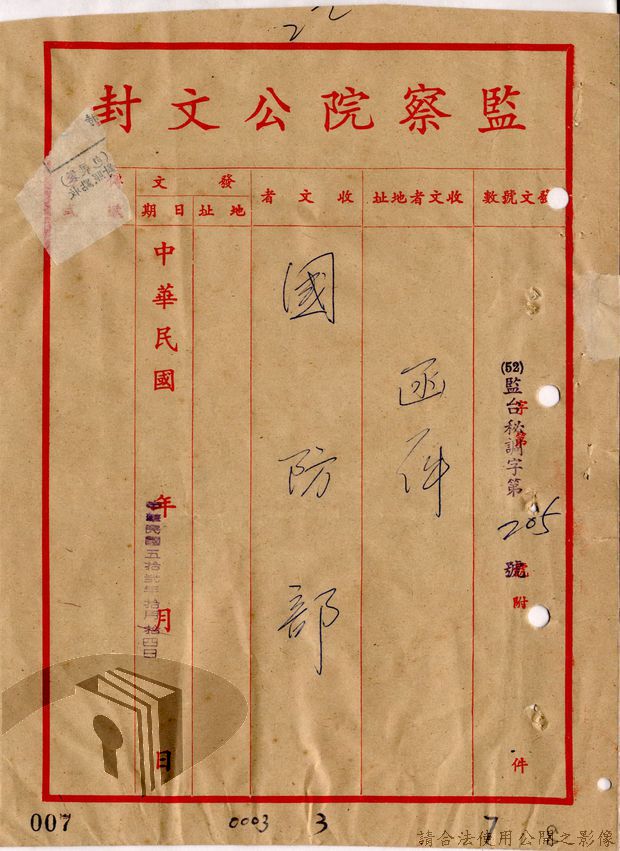 監察院公文封
發文號數
收文者地址
收文者
發文
地址
日期
(52)監台秘調字第205號
字第
附
件
函件
國防部
中華民國 年 月 日
中華民國五拾貳年拾月拾四日
007
0003
3
7
8
請合法使用公開之影像